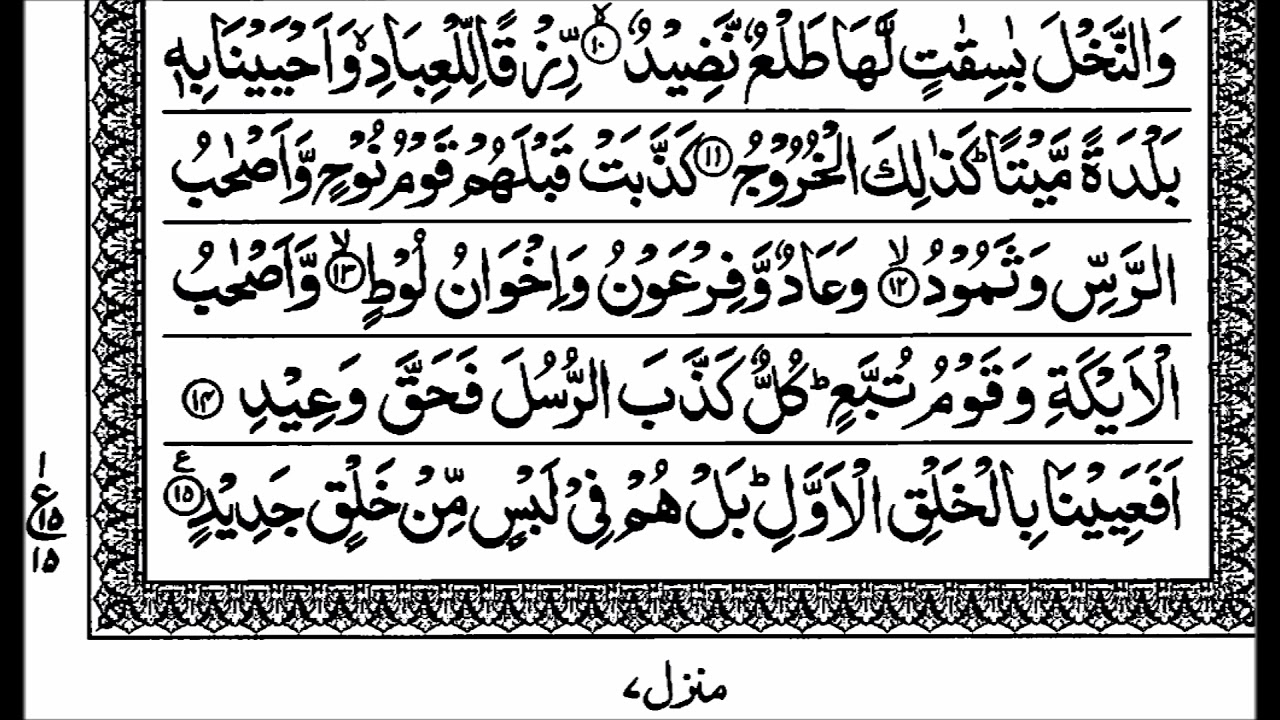 وَالنَّخْلَ بٰسِقٰتٍ لَّهَا طَلْعٌ نَّضِيْدٌ ۙ﴿۱۰﴾ رِّزْقًا لِّلْعِبَادِ ۙ وَاَحْيَيْنَا بِهٖ
بَلْدَةً مَّيْتًا ؕ كَذٰلِكَ الْخُرُوْجُ ﴿۱۱﴾ كَذَّبَتْ قَبْلَهُمْ قَوْمُ نُوْحٍ وَّاَصْحٰبُ
الرَّسِّ وَثَمُوْدُ ۙ﴿۱۲﴾ وَعَادٌ وَّفِرْعَوْنُ وَاِخْوَانُ لُوْطٍ ۙ﴿۱۳﴾ وَّاَصْحٰبُ
الْاَيْكَةِ وَقَوْمُ تُبَّعٍ ؕ كُلٌّ كَذَّبَ الرُّسُلَ فَحَقَّ وَعِيْدِ ﴿۱۴﴾
اَفَعَيِيْنَا بِالْخَلْقِ الْاَوَّلِ ؕ بَلْ هُمْ فِيْ لَبْسٍ مِّنْ خَلْقٍ جَدِيْدٍ ﴿۱۵﴾ ع
۱
ع ۱۵
۱۵
منزل ۷